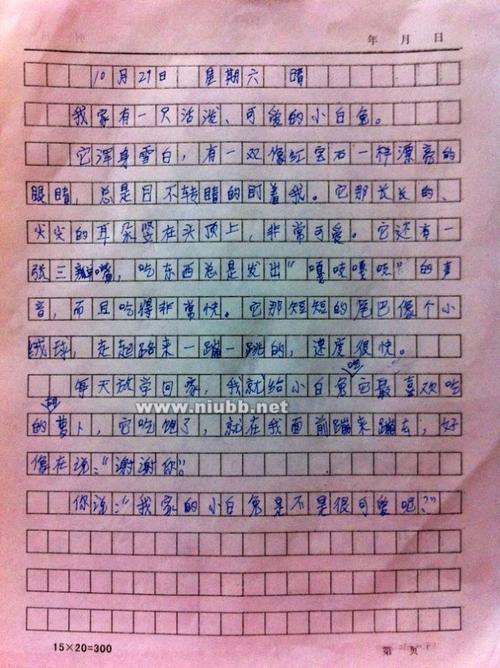 年 月 日
10月27日 星期六 晴
我家有一只活泼、可爱的小白兔。
它浑身雪白,有一双像红宝石一样漂亮的
眼睛,总是目不转睛的盯着我。它那长长的、
尖尖的耳朵竖在头顶上,非常可爱。它还有一
张三瓣嘴,吃东西总是发出“嘎吱嘎吱”的声
音,而且吃得非常快。它那短短的尾巴像个小
绒球,走起路来一蹦一跳的,速度很快。
每天放学回家,我就给小白兔吃它最喜欢吃
www.niubb.net
的胡萝卜,它吃饱了,就在我面前蹦来蹦去,好
像在说:“谢谢你”。
你说:“我家的小白兔是不是很可爱呢?”
15×20=300
第 页